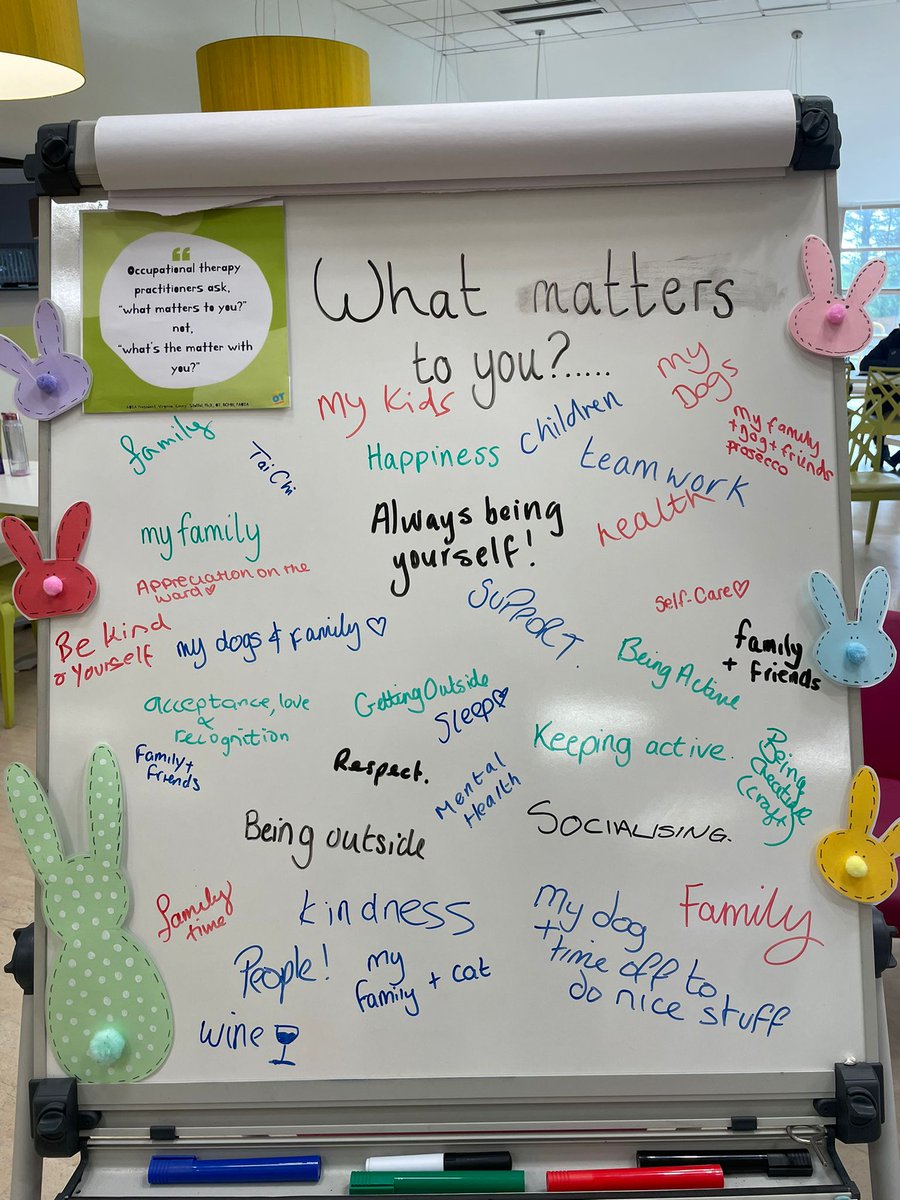 Occupational therapy
practitioners ask,
"what matters to you?"
not,
"what's the matter with
you?"
OT
What matters
to you?......
my
Dogs
My Kids
children
my family
+ Dog + friends
prosecco
family
Tai Chi
Happiness
teamwork
my family
Always being
yourself!
health
Appreciation on the
ward
Self-Care
Support.
Be kind
Yourself
my dogs & family
family
+ friends
Being Active
acceptance, love
&
recognition
Getting Outside
Sleep
Keeping active.
Being
Creative
(craft)
Family +
friends
Respect.
Mental
Health
Being outside
Socialising.
family
time
kindness
my dog
+ time off to
do nice stuff
Family
People!
my
family + cat
wine